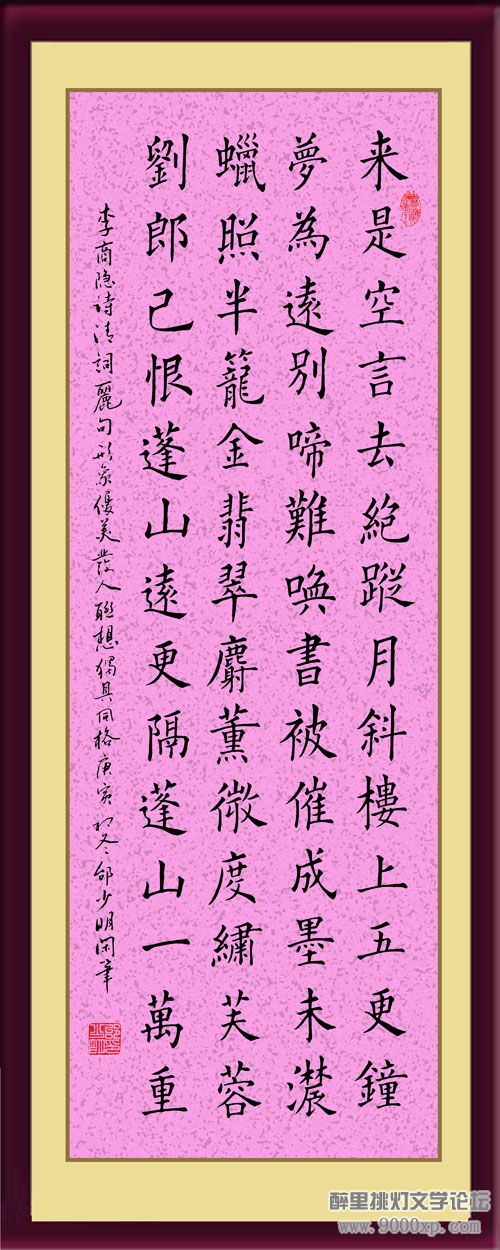 来是空言去絶蹤月斜樓上五更鐘
夢為遠別啼難喚書被催成墨未濃
蠟照半籠金翡翠麝薰微度繡芙蓉
劉郎己恨蓬山遠更隔蓬山一萬重
李商隐诗清詞麗句形象優美發人聯想獨具风格庚寅初冬邰少明闲筆
醉里挑灯文学论坛
www.9000xp.com